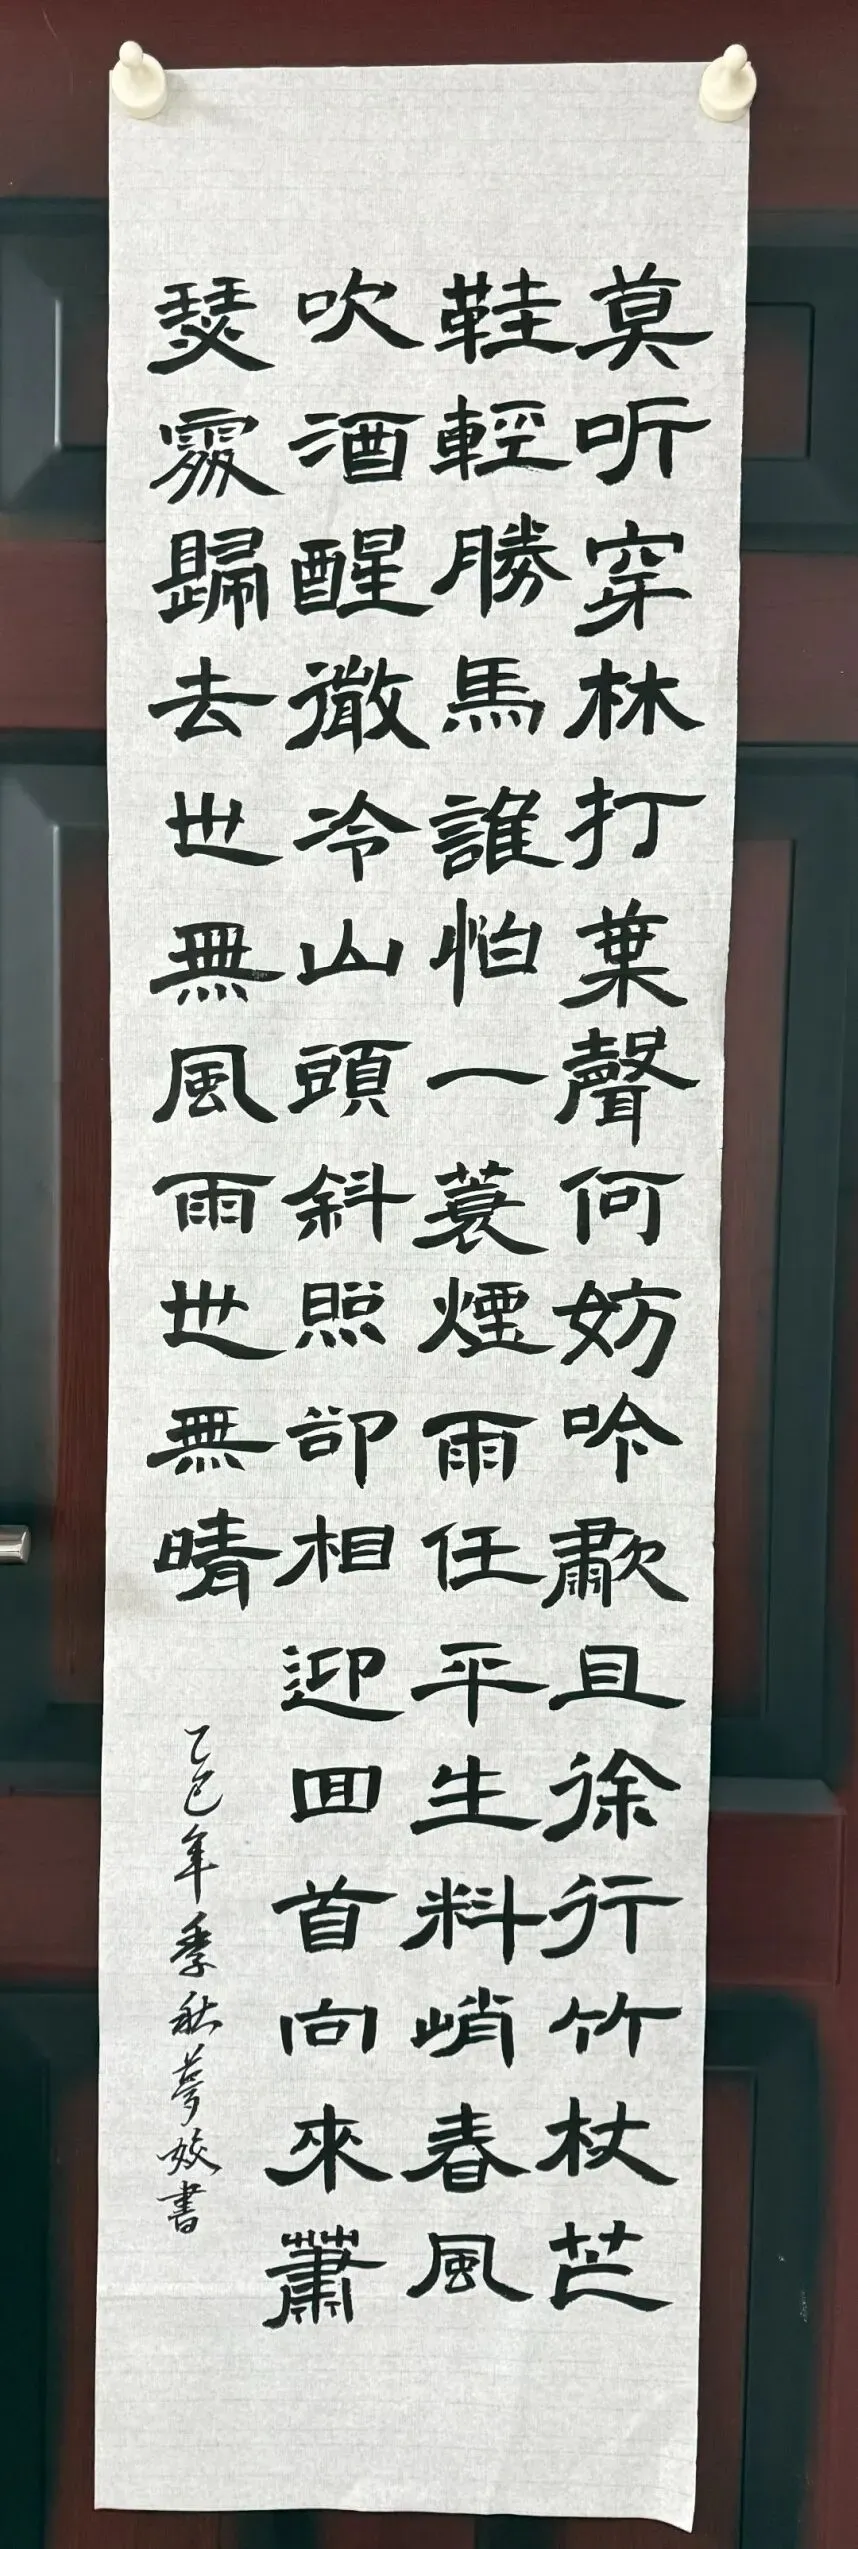 莫听穿林打葉聲何妨吟歗且徐行竹杖芒
鞋輕勝馬誰怕一蓑煙雨任平生料峭春風
吹酒醒微冷山頭斜照卻相迎回首向來蕭
瑟處歸去也無風雨也無晴
乙巳年季秋夢姣書